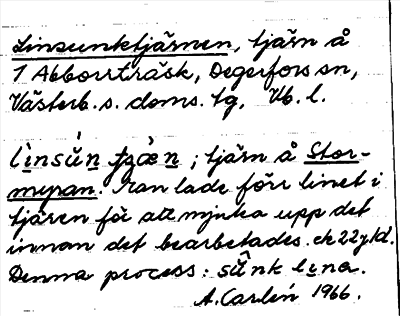 Linsunktjärnen, tjärn å
1 Abborrträsk, Degerfors sn,
Västerb. s. doms. tg, Vb. l.
lìnsŭ̀n tjæ̀n ; tjärn å Stor-
myran. Man lade förr linet i
tjären för att mjuka upp det
innan det bearbetades. ek 22y1d.
Denna process: sŭ̂nk lina.
A. Carlén 1966.